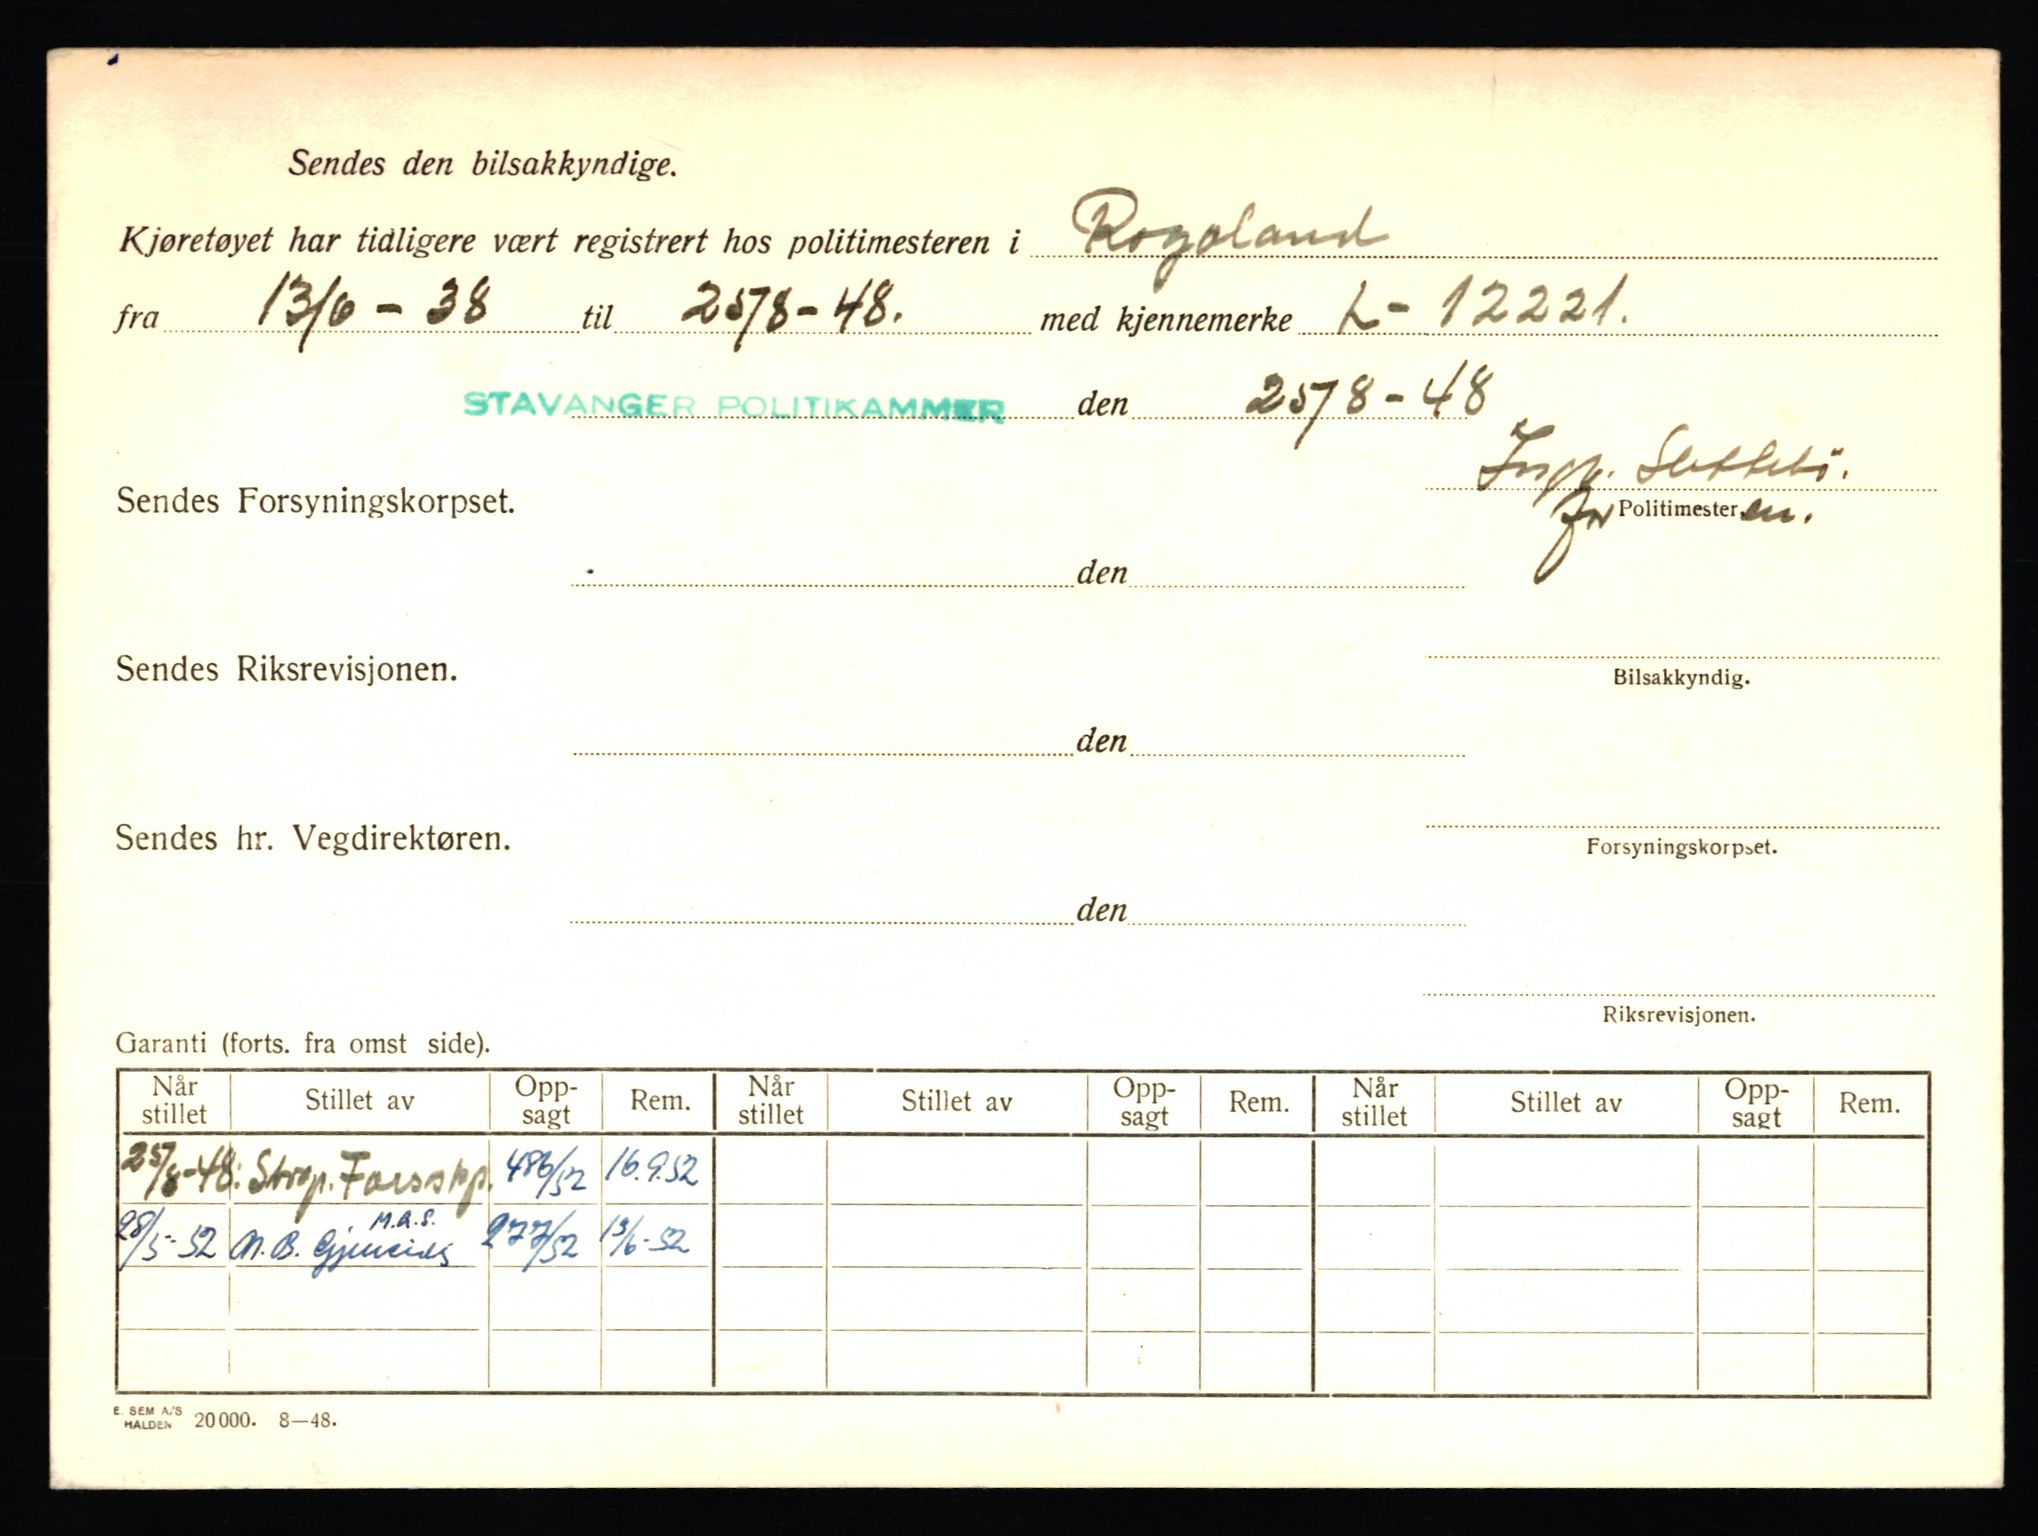 Sendes den bilsakkyndige.
Kjøretøyet har tidligere vært registrert hos politimesteren i Rogaland
fra 13/6 - 38 til 25/8 - 48. med kjennemerke L - 12221.
STAVANGER POLITIKAMMER den 25/8 - 48
Sendes Forsyningskorpset.
for Politimesteren.
den
Sendes Riksrevisjonen.
Bilsakkyndig.
den
Sendes hr. Vegdirektøren.
Forsyningskorpset.
den
Riksrevisjonen.
Garanti (forts. fra omst side).
Når stillet Stillet av Opp-sagt Rem. Når stillet Stillet av Opp-sagt Rem. Når stillet Stillet av Opp-sagt Rem.
25/8-48: 486/52 16.9.52
28/5-52 277/52 13/6-52
E. SEM A/S HALDEN 20000. 8—48.